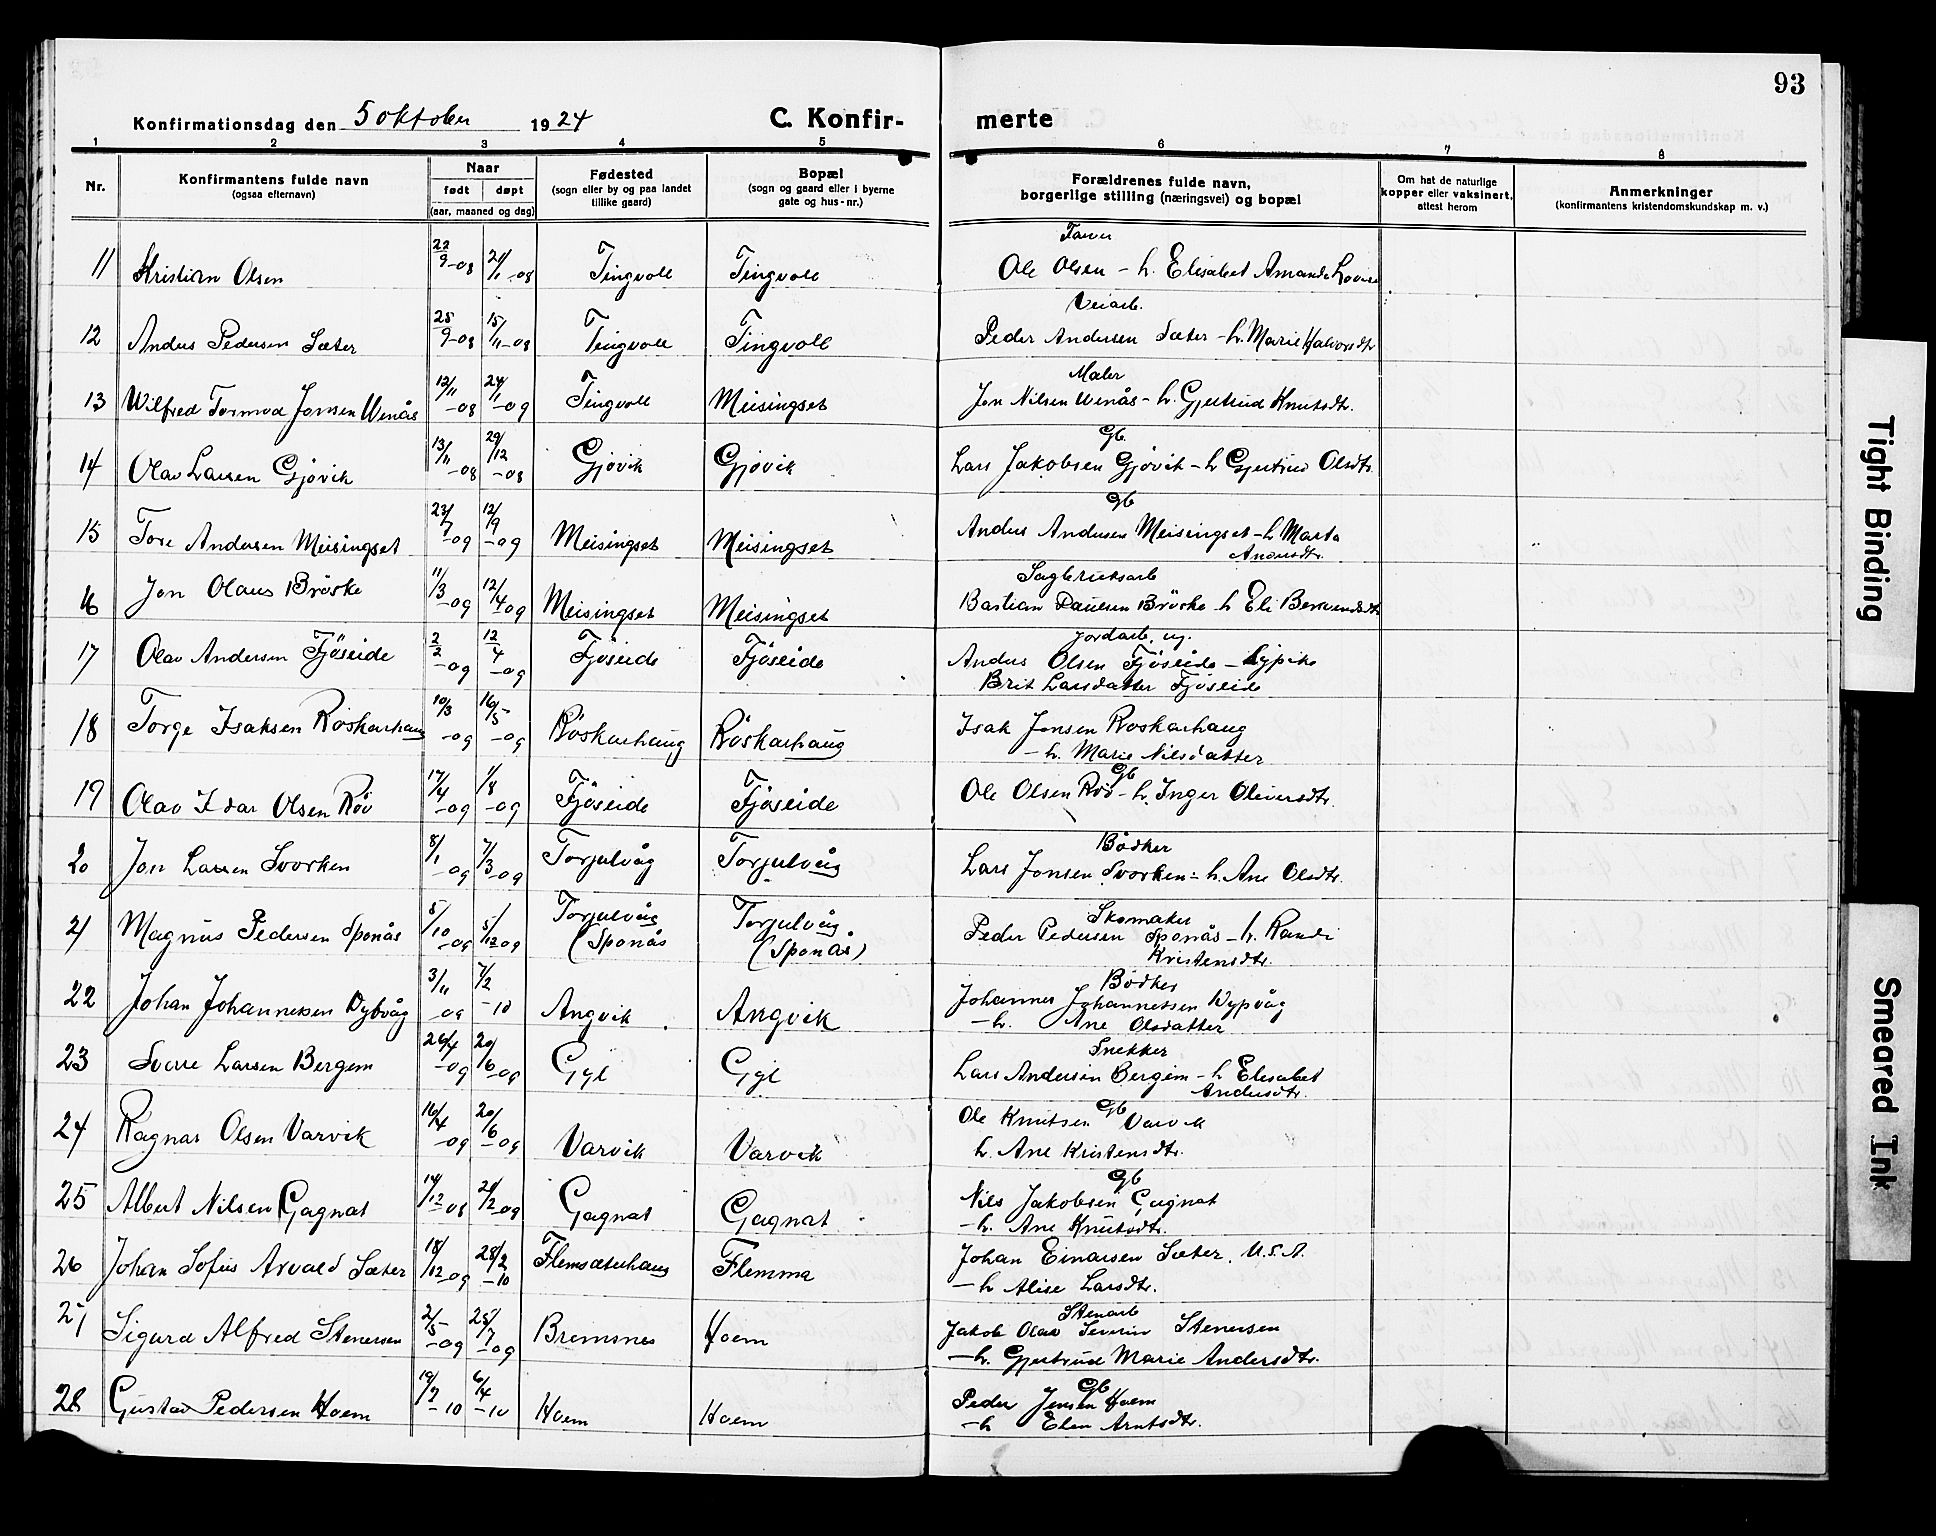 93
Konfirmationsdag den 5 oktober 1924 C. Konfir- merte
1 2 3 4 5 6 7 8
Nr. Konfirmantens fulde navn (ogsaa efternavn) Naar født døpt (aar, maaned og dag) Fødested (sogn eller by og paa landet tillike gaard) Bopæl (sogn og gaard eller i byerne gate og hus-nr.) Forældrenes fulde navn, borgerlige stilling (næringsvei) og bopæl Om hat de naturlige kopper eller vaksinert, attest herom Anmerkninger (konfirmantens kristendomskundskap m. v.)
11 Kristian Olsen 22/9-08 21/11-08 Tingvoll Tingvoll
Ole Olsen - h. Elisabet Amanda Lovise
12 Anders Pedersen Sæter 25/9-08 15/11-08 Tingvoll Tingvoll Veiarb.
Peder Andersen Sæter - h. Marie Halvorsdtr
13 Wilfred Tormod Jonsen Wenås 12/11-08 24/1-09 Tingvoll Meisingset Maler
Jon Nilsen Wenås - h. Gjertrud Knutsdtr.
14 Olav Larsen Gjøvik 13/11-08 29/12-08 Gjøvik Gjøvik Gb.
Lars Jakobsen Gjøvik - h Gjertrud Olsdtr.
15 Tore Andersen Meisingset 23/7-09 12/9-09 Meisingset Meisingset Gb
Anders Andersen Meisingset - h Marta
Andersdtr.
16 Jon Olaus Brøske 11/3-09 12/4-09 Meisingset Meisingset Sagbruksarb
Bastian Paulsen Brøske - h Eli
17 Olav Andersen Fjøseide 2/2-09 12/4-09 Fjøseide Fjøseide Jordarb. ug.
Anders Olsen Fjøseide - og pike
Brit Larsdatter Fjøseide
18 Torge Isaksen Røskarhaug 10/3-09 16/5-09 Røskarhaug Røskarhaug Isak Jonsen Røskarhaug
- h. Marie Nilsdatter
19 Olav Idar Olsen Røv 17/4-09 1/8-09 Fjøseide Fjøseide Gb
Ole Olsen Røv - h. Inger Oliversdtr.
20 Jon Larsen Svorken 8/1-09 7/3-09 Torjulvåg Torjulvåg Bødker
Lars Jonsen Svorken - h. Ane Olsdtr.
21 Magnus Pedersen Sponås 5/10-09 5/12-09 Torjulvåg (Sponås Torjulvåg (Sponås) Skomaker
Peder Pedersen Sponås - h. Randi
Kristensdtr.
22 Johan Johannessen Dybvåg 3/11-09 7/2-10 Angvik Angvik Bødker
Johannes Johannessen Dypvåg
- h. Ane Olsdatter
23 Sverre Larsen Bergem 26/4-09 20/6-09 Gyl Gyl Snekker
Lars Andersen Bergem - h Elisabet
Andersdtr.
24 Ragnar Olsen Varvik 16/4-09 20/6-09 Varvik Varvik Gb
Ole Knutsen Varvik
h. Ane Kristensdtr.
25 Albert Nilsen Gagnat 14/12-08 21/2-09 Gagnat Gagnat Gb
Nils Jakobsen Gagnat
- h. Ane Knutsdtr.
26 Johan Sofus Arvald Sæter 18/12-09 28/2-10 Flemsæterhaug Flemma Johan Einarsen Sæter, U.S.A.
- h Alise Larsdtr.
27 Sigurd Alfred Stenersen 2/5-09 25/7-09 Bremsnes Hoem Stenarb
Jakob Olav Severin Stenersen
- h. Gjertrud Marie Andersdtr.
28 Gustav Pedersen Hoem 19/2-10 6/4-10 Hoem Hoem Gb
Peder Jensen Hoem
- h Elen Arntsdtr.
Tight Binding
Smeared Ink